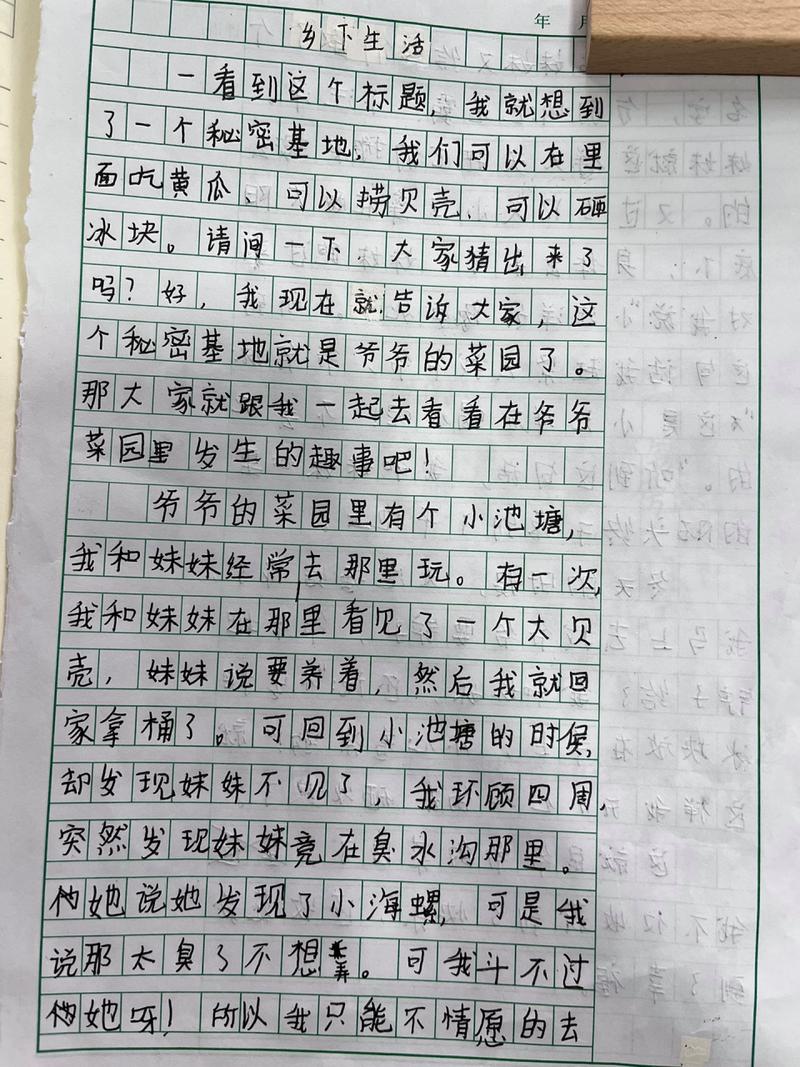 年 月
乡下生活
一看到这个标题，我就想到
了一个秘密基地，我们可以在里
面吃黄瓜、可以捞贝壳、可以砸
冰块。请问一下，大家猜出来了
吗？好，我现在就告诉大家，这
个秘密基地就是爷爷的菜园了。
那大家就跟我一起去看看在爷爷
菜园里发生的趣事吧！
爷爷的菜园里有个小池塘，
我和妹妹经常去那里玩。有一次，
我和妹妹在那里看见了一个大贝
壳，妹妹说要养着，然后我就回
家拿桶了。可回到小池塘的时候，
却发现妹妹不见了，我环顾四周，
突然发现妹妹竟在臭水沟那里。
她说她发现了小海螺，可是我
说那太臭了不想弄。可我斗不过
她呀！所以我只能不情愿的去